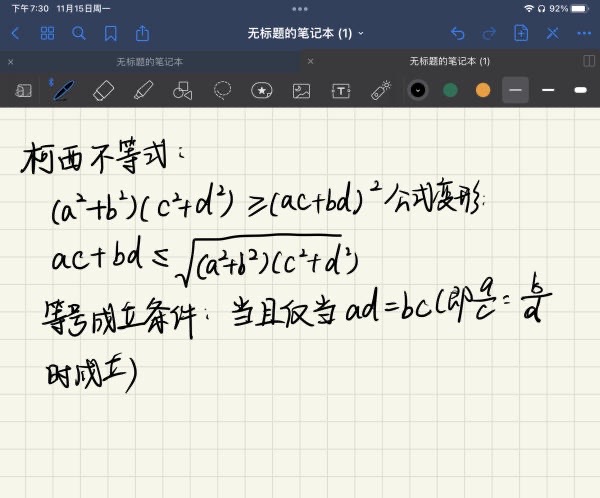 下午7:30 11月15日周一
92%
无标题的笔记本 (1)
无标题的笔记本
无标题的笔记本 (1)
柯西不等式:
(a²+b²)(c²+d²) ≥(ac+bd)² 公式变形:
ac+bd ≤ √(a²+b²)(c²+d²)
等号成立条件: 当且仅当 ad=bc(即 a/c = b/d
时成立)